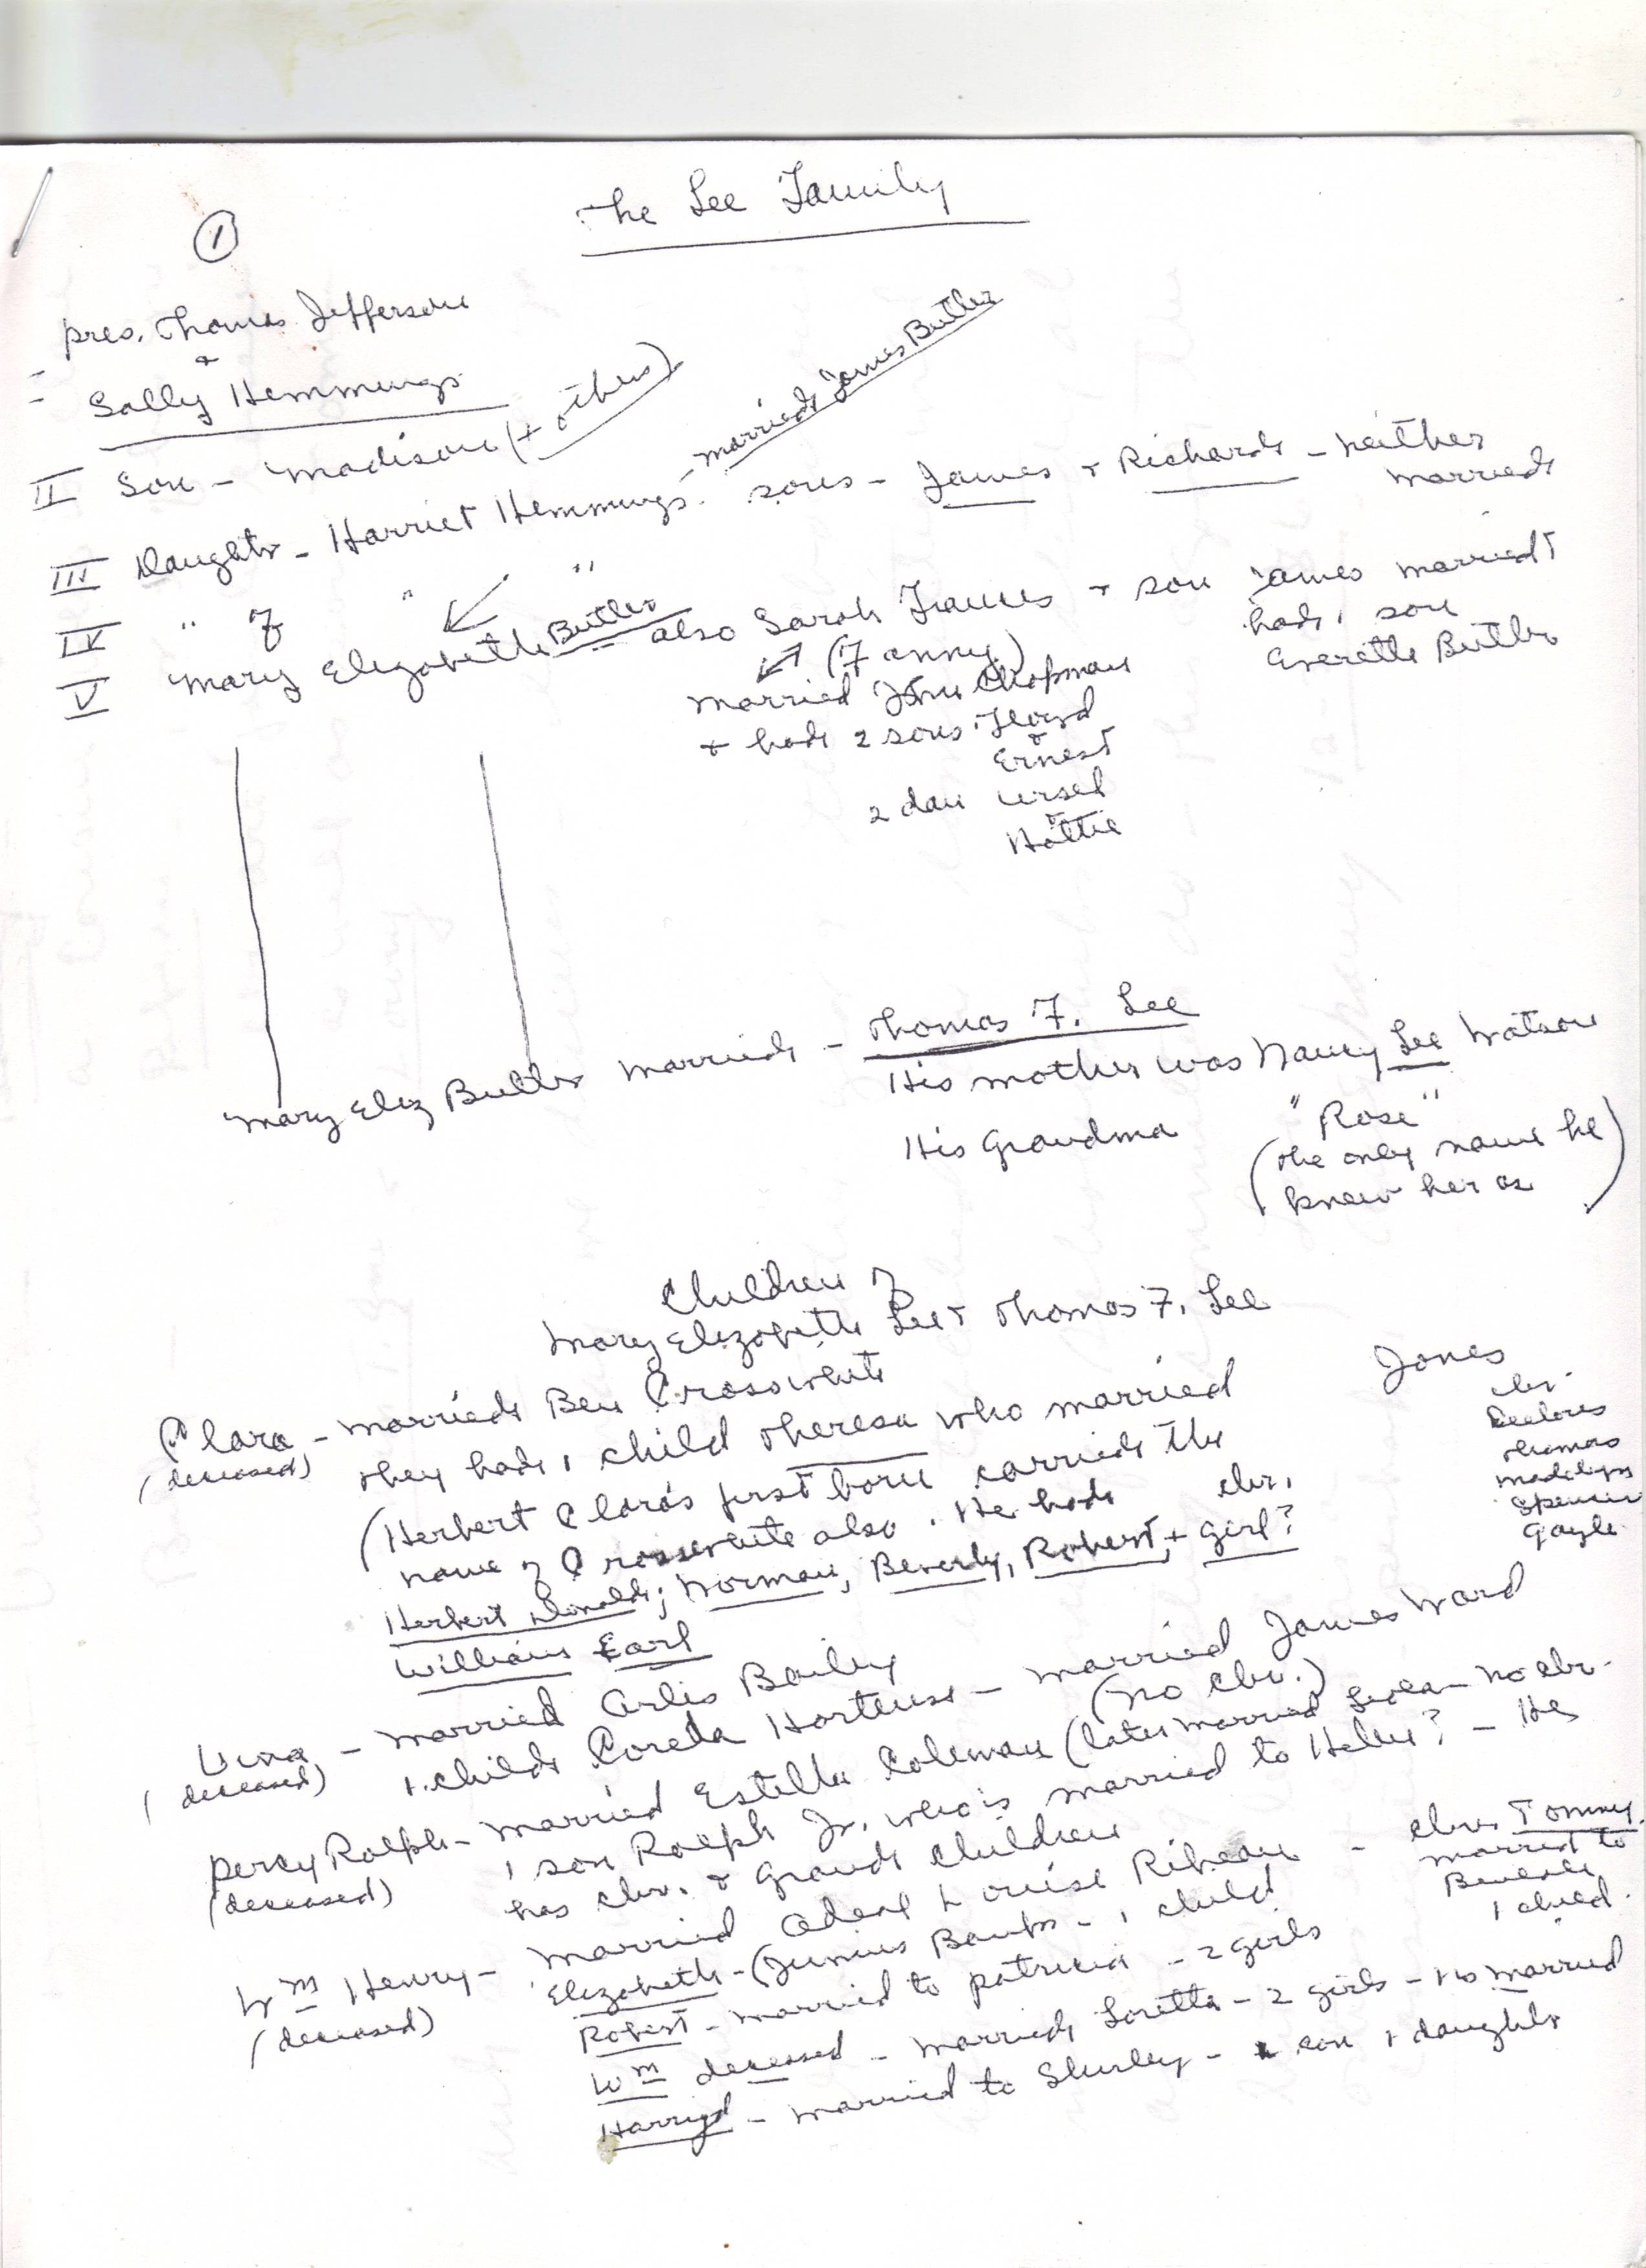 The Lee Family
1
Pres. Thomas Jefferson
+
Sally Hemmings
II Son - Madison (+ others)
III Daughter - Harriet Hemmings - married James Butler
sons - James + Richard - neither married
IV " of " "
V Mary Elizabeth Butler also Sarah Frances + son James married +
had 1 son
Everette Butler
married Chapman
+ had 2 sons Floyd
+
Ernest
2 dau Ursel
+
Hattie
Mary Eliz Butler married - Thomas F. Lee
His mother was Nancy Lee Watson
His Grandma "Rose"
(the only name he
knew her as)
Children of
Mary Elizabeth Lee + Thomas F. Lee
Clara - married Ben Crosswhite
(deceased) They had 1 child Theresa who married Jones
chr.
Delores
Thomas
Madelyn
Spencer
Gayle
(Herbert Clara's first born carried the
name of Crosswhite also. He had chr.
Herbert Donald; Norman, Beverly, Robert, + girl?
William Earl
- married Arlis Bailey
(deceased) 1 child Coreda Hortense - married James Ward
(no chr.)
Percy Ralph - married Estella Coleman (later married - no chr.
(deceased) 1 son Ralph Jr. who is married to Helen? - He
has chr. + grand children
Wm Henry - married Louise - chr. Tommy
married to
1 child.
(deceased) Elizabeth - (Junius Banks - 1 child
Robert - married to Patricia - 2 girls
Wm deceased - married Loretta - 2 girls - married
Harry - married to Shirley - son 1 daughter